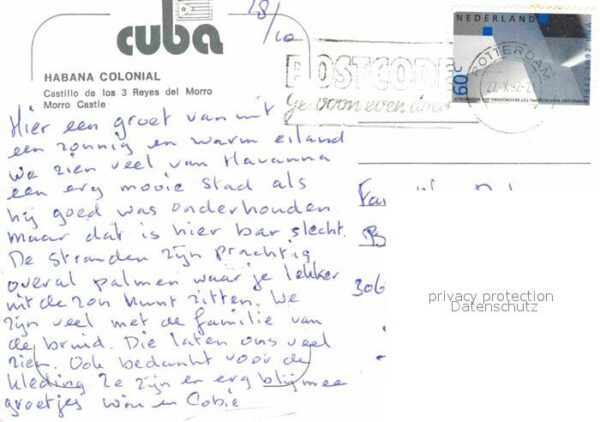 18/10
cuba
HABANA COLONIAL
Castillo de los 3 Reyes del Morro
Morro Castle
NEDERLAND
60c
ROTTERDAM
27.X.92-2
POSTCODE
gewoon even doen
Hier een groet van uit
een zonnig en warm eiland
We zien veel van Havanna
een erg mooie stad als
hij goed was onderhouden
maar dat is hier bar slecht.
De stranden zijn prachtig
overal palmen waar je lekker
uit de zon kunt zitten. We
zijn veel met de familie van
de bruid. Die laten ons veel
zien. Ook bedankt voor de
kleding ze zijn er erg blij mee
groetjes Wim en Cobie
Fa
B
306
privacy protection
Datenschutz